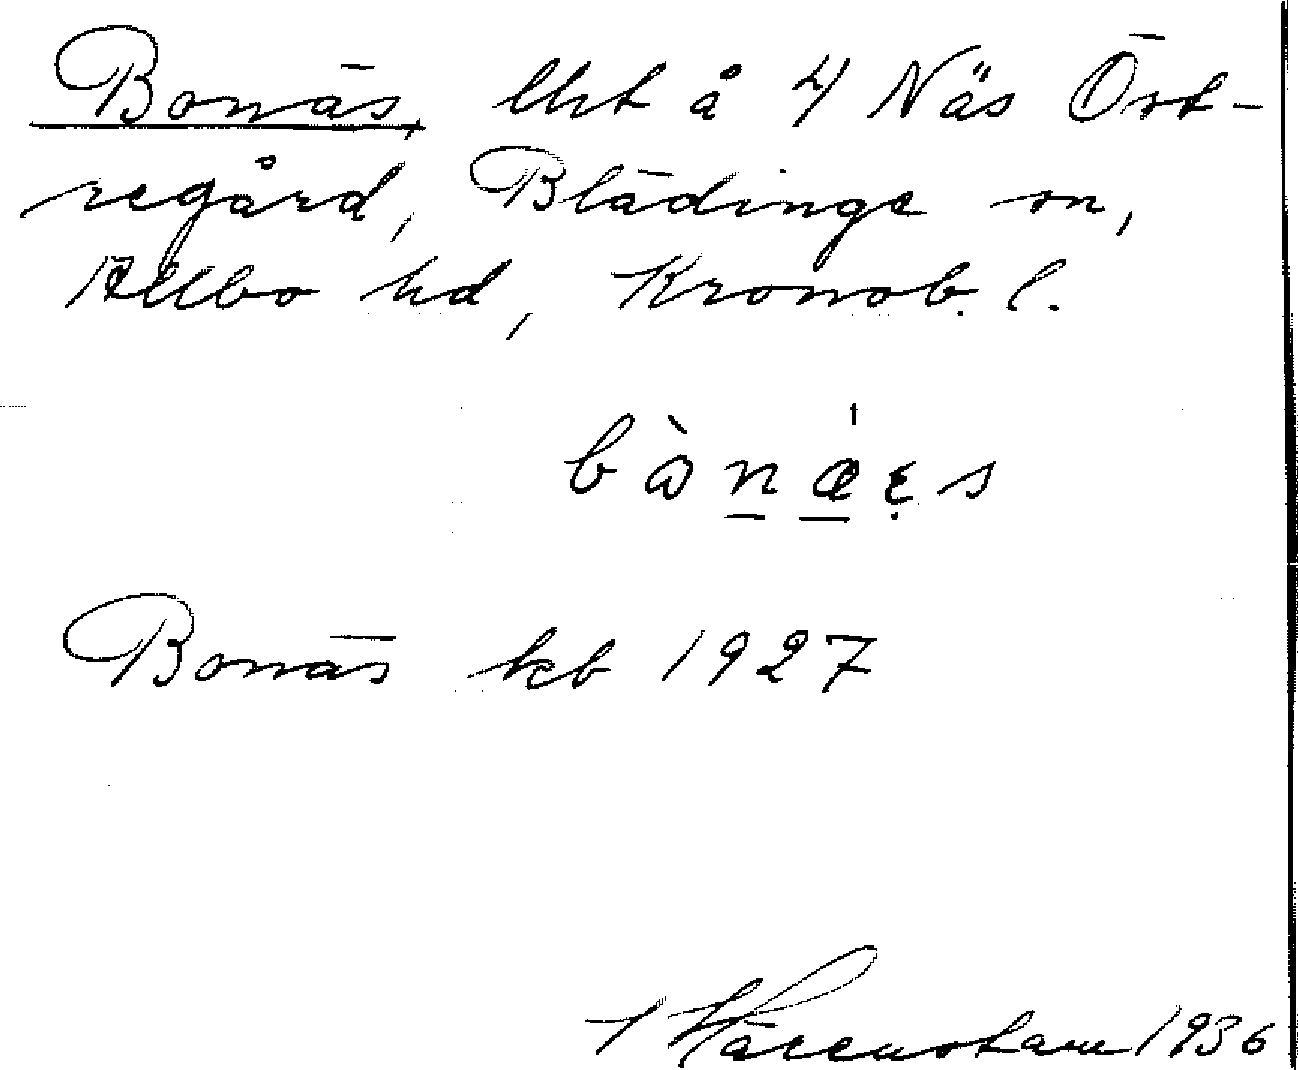 Bonäs, lht å 4 Näs Öst-
regård, Blädinge sn,
Allbo hd, Kronob. l.
bònǽęs
Bonäs kb 1927
1936